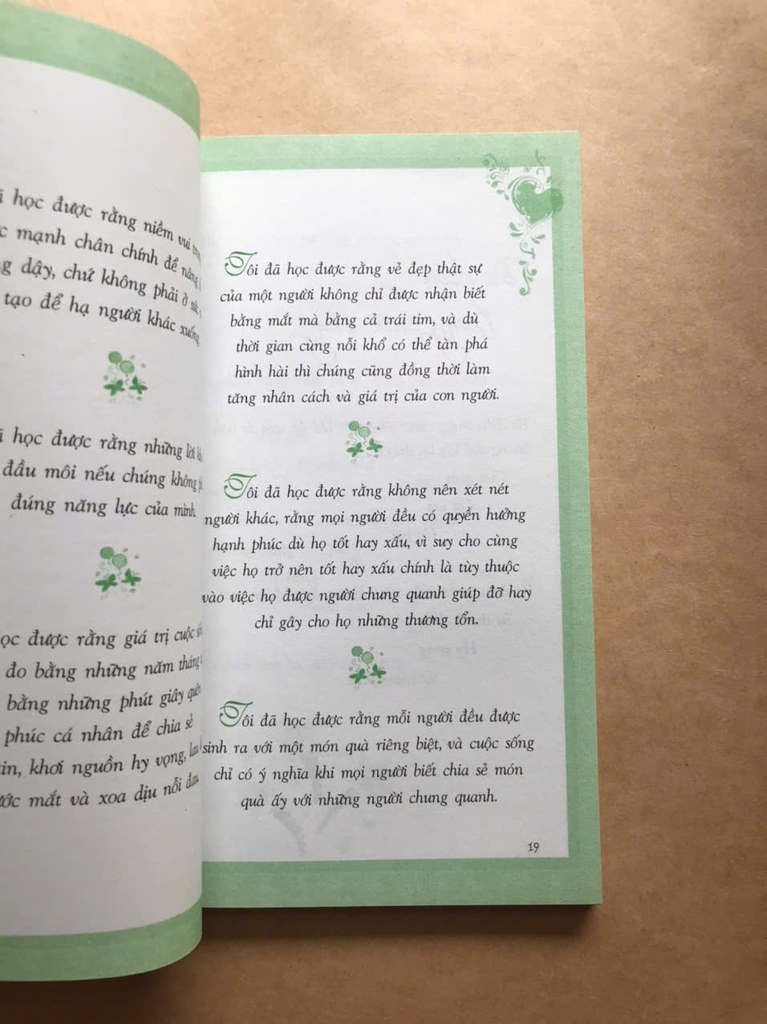 học được rằng niềm vui
mạnh chân chính để nâng
dậy, chứ không phải ở sức
tạo để hạ người khác xuống
học được rằng những lời
đầu môi nếu chúng không
đúng năng lực của mình.
học được rằng giá trị cuộc
đo bằng những năm tháng
bằng những phút giây quên
phúc cá nhân để chia sẻ
khơi nguồn hy vọng, lau
mắt và xoa dịu nỗi đau
Tôi đã học được rằng vẻ đẹp thật sự
của một người không chỉ được nhận biết
bằng mắt mà bằng cả trái tim, và dù
thời gian cùng nỗi khổ có thể tàn phá
hình hài thì chúng cũng đồng thời làm
tăng nhân cách và giá trị của con người.
Tôi đã học được rằng không nên xét nét
người khác, rằng mọi người đều có quyền hưởng
hạnh phúc dù họ tốt hay xấu, vì suy cho cùng
việc họ trở nên tốt hay xấu chính là tùy thuộc
vào việc họ được người chung quanh giúp đỡ hay
chỉ gây cho họ những thương tổn.
Tôi đã học được rằng mỗi người đều được
sinh ra với một món quà riêng biệt, và cuộc sống
chỉ có ý nghĩa khi mọi người biết chia sẻ món
quà ấy với những người chung quanh.
19